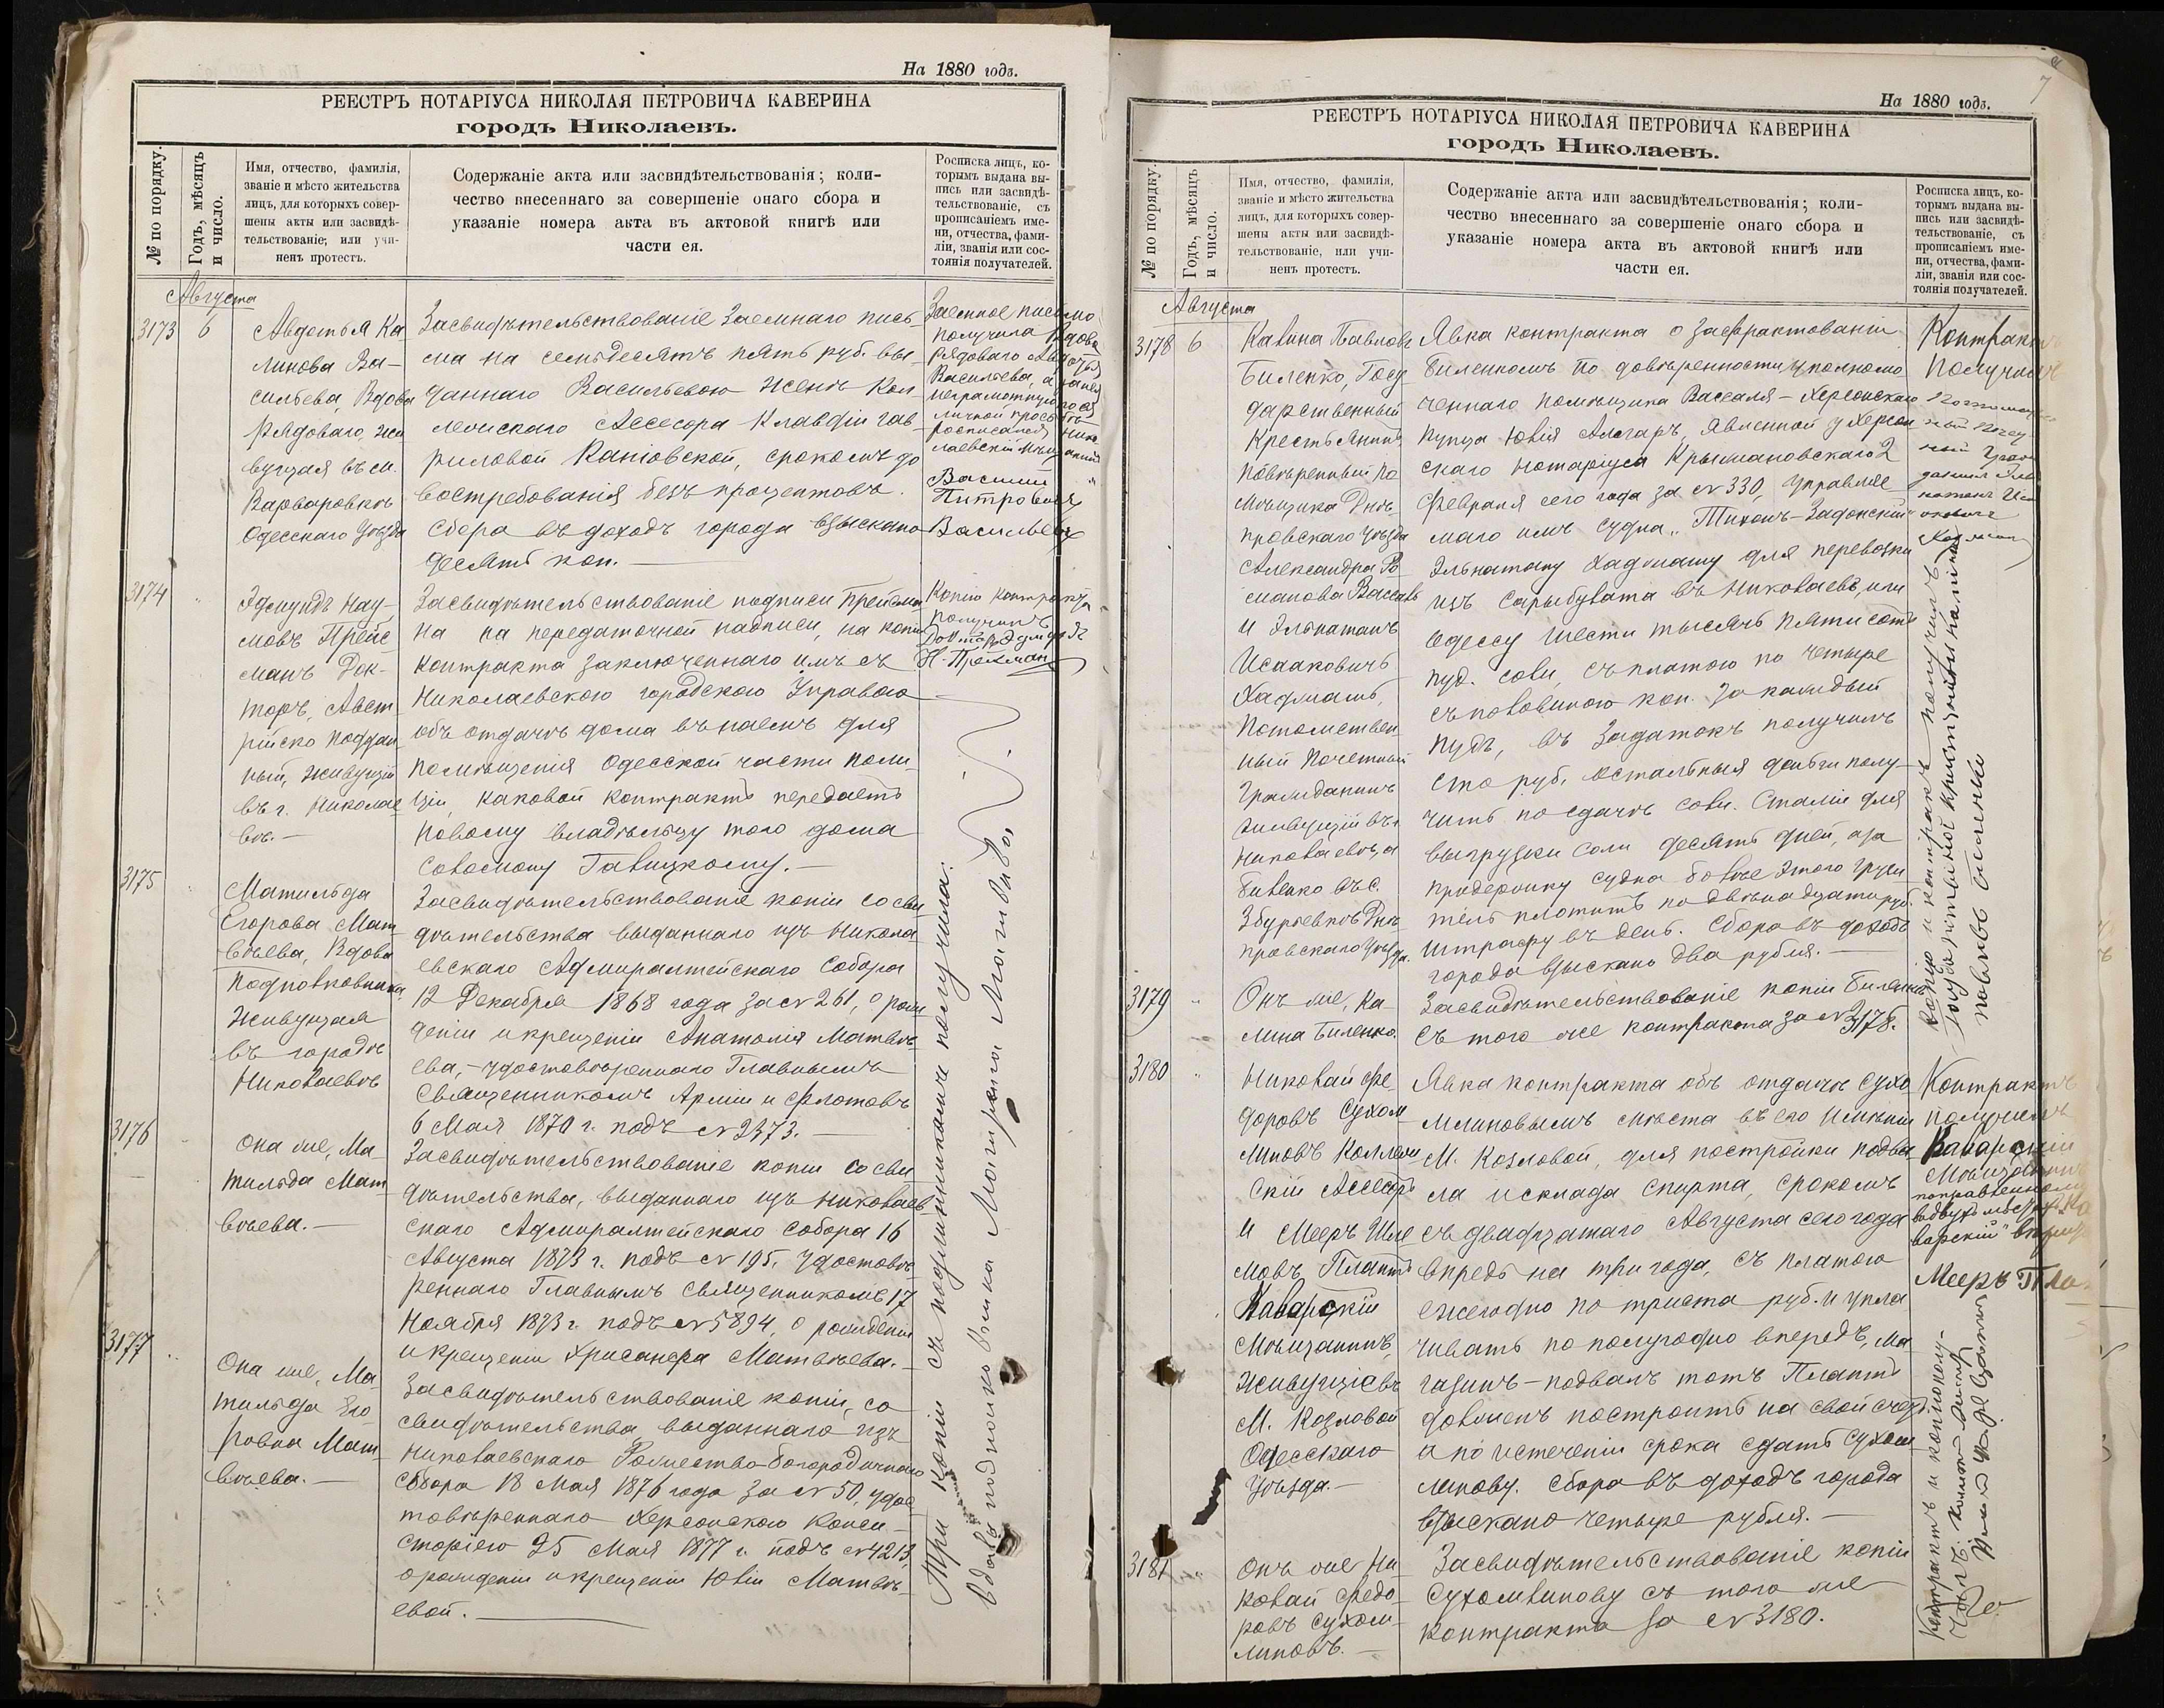 На 1880 годъ.
РЕЕСТРЪ НОТАРІУСА НИКОЛАЯ ПЕТРОВИЧА КАВЕРИНА
городъ Николаевъ.
№ по порядку.
Годъ, мѣсяцъ
и число.
Имя, отчество, фамилія,
званіе и мѣсто жительства
лицъ, для которыхъ совер-
шены акты или засвидѣ-
тельствованіе; или учи-
ненъ протестъ.
Содержаніе акта или засвидѣтельствованія; коли-
чество внесеннаго за совершеніе онаго сбора и
указаніе номера акта въ актовой книгѣ или
части ея.
Росписка лицъ, ко-
торымъ выдана вы-
пись или засвидѣ-
тельствованіе, съ
прописаніемъ име-
ни, отчества, фами-
ліи, званія или сос-
тоянія получателей.
Августа
3173
6
Авдотья Ка
линова Ва-
сильева, Вдова
рядоваго, жи
вущая въ си.
Варваровкѣ
Одесскаго уѣзда
Засвидѣтельствованіе Заемнаго пись-
ма на семьдесятъ пять руб. вы-
даннаго Васильевою женѣ Кол-
лежскаго Ассесора Клавдіи Гав-
риловой Раніовской, срокомъ до
востребованія безъ процентовъ.
Сбора въ доходъ города взыскано
десять коп.
Заемное письмо
получила Вдова
рядоваго Авдотья
Васильева, а за нея
неграмотную по ея
личной просьбѣ
росписался Нико-
лаевскій мѣщанинъ
Василій
Петровичъ
Васильевъ
3174
Эдмундъ Нау-
мовъ Прейс
манъ Док-
торъ, Авст
рійско поддан
ный, живущій
въ г. Николае
вѣ.
Засвидѣтельствованіе подписи Прейсма
на на передаточной надписи, на копіи
контракта заключеннаго имъ съ
Николаевскою городскою Управою
объ отдачѣ дома въ наемъ для
помѣщенія Одесской части поли-
ціи, каковой контрактъ передаетъ
новому владѣльцу того дома
Соломону Гавицкому.
Копію контракта
получилъ
Докторъ Эдмундъ
Н. Прейсман
3175
Матильда
Егорова Мат
вѣева, Вдова
Подполковника
Живущая
въ городѣ
Николаевѣ
Засвидѣтельствованіе копіи со сви
дѣтельства выданнаго изъ Никола-
евскаго Адмиралтейскаго Собора
12 Декабря 1868 года за № 261, о рож
деніи и крещеніи Анатолія Матвѣ-
ева, удостовѣреннаго Главнымъ
Священникомъ Арміи и Флотовъ
6 Мая 1870 г. подъ № 2373.
3176
Она же, Ма-
тильда Мат
вѣева.
Засвидѣтельствованіе копіи со сви
дѣтельства, выданнаго изъ Николаев-
скаго Адмиралтейскаго Собора 16
Августа 1873 г. подъ № 195, удостовѣ-
реннаго Главнымъ Священникомъ 17
Ноября 1873 г. подъ № 5894, о рожденіи
и крещеніи Хрисанфа Матвѣева.
3177
Она же, Ма-
тильда Его-
ровна Мат-
вѣева.
Засвидѣтельствованіе копіи, со
свидѣтельства выданнаго изъ
Николаевскаго Рождество-Богородичнаго
Собора 18 Мая 1876 года за № 50, удос
товѣреннаго Херсонскою Конси-
сторіею 25 Мая 1877 г. подъ № 4213,
о рожденіи и крещеніи Юліи Матвѣ-
евой.
Три копіи съ подлинниками получила:
Вдова подполковника Матильда Матвѣева
На 1880 годъ.
7
РЕЕСТРЪ НОТАРІУСА НИКОЛАЯ ПЕТРОВИЧА КАВЕРИНА
городъ Николаевъ.
№ по порядку.
Годъ, мѣсяцъ
и число.
Имя, отчество, фамилія,
званіе и мѣсто жительства
лицъ, для которыхъ совер-
шены акты или засвидѣ-
тельствованіе, или учи-
ненъ протестъ.
Содержаніе акта или засвидѣтельствованія; коли-
чество внесеннаго за совершеніе онаго сбора и
указаніе номера акта въ актовой книгѣ или
части ея.
Росписка лицъ, ко-
торымъ выдана вы-
пись или засвидѣ-
тельствованіе, съ
прописаніемъ име-
ни, отчества, фами-
ліи, званія или сос-
тоянія получателей.
Августа
3178
6
Калина Павловъ
Биленко, Госу
дарственный
Крестьянинъ
повѣренный По
мѣщика Днѣ-
провскаго уѣзда
Александра Ро
манова Вассаля
и Эльнатанъ
Исааковичъ
Хадшашъ,
Потомствен
ный Почетный
Гражданинъ
живущій въ г.
Николаевѣ, а
Биленко въ с.
Збурьевкѣ Днѣ
провскаго уѣзда.
Явка контракта о зафрахтованіи
Биленкомъ по довѣренности уполномо
ченнаго помѣщика Вассаля - Херсонскаго
купца Юлія Алсгаръ, явленной у Херсон
скаго Нотаріуса Крыжановскаго 2
Февраля сего года за № 330, управляе
маго имъ судна „Тихонъ-Задонскій"
Эльнатану Хадшашу для перевозки
изъ Сарыбулата въ Николаевъ, или
Одессу шести тысячъ пяти сотъ
пуд. соли, съ платою по четыре
съ половиною коп. за каждый
пудъ, въ задатокъ получилъ
сто руб, остальныя деньги полу-
читъ по сдачѣ соли. Сталіи для
выгрузки соли десять дней, а за
придержку судна болѣе этого грузи
тель платитъ по двѣнадцати руб.
штрафу въ день. Сбора въ доходъ
города взыскано два рубля.
Контрактъ
Получилъ
3179
Онъ же, Ка
лина Биленко.
Засвидѣтельствованіе копіи Биленко
съ того же контракта за № 3178.
Копію и контрактъ получилъ
Государственный крестьянинъ калина
павловъ биленко
3180
Николай Фе-
доровъ Сухом
линовъ Коллеж
скій Ассесоръ
и Мееръ Шле
мовъ Плантъ
Каварскій
Мѣщанинъ,
живущіе въ
М. Козловой
Одесскаго
уѣзда.
Явка контракта объ отдачѣ Сухо
млиновымъ мѣста въ его имѣніи
М. Козловой, для постройки подва-
ла и склада спирта, срокомъ
съ двадцатаго Августа сего года
впредь на три года, съ платою
ежегодно по триста руб. и упла
чивать по полугодно впередъ, ма
газинъ-подвалъ тотъ Плантъ
долженъ построить на свой счетъ,
а по истеченіи срока сдать Сухом
линову. Сбора въ доходъ города
взыскано четыре рубля.
Контрактъ
получилъ
Каварскій
Мѣщанинъ
Мееръ
3181
Онъ же Ни
колай Федо-
ровъ Сухом-
линовъ.
Засвидѣтельствованіе копіи
Сухомлинову съ того же
контракта за № 3180.
Контрактъ и копію полу-